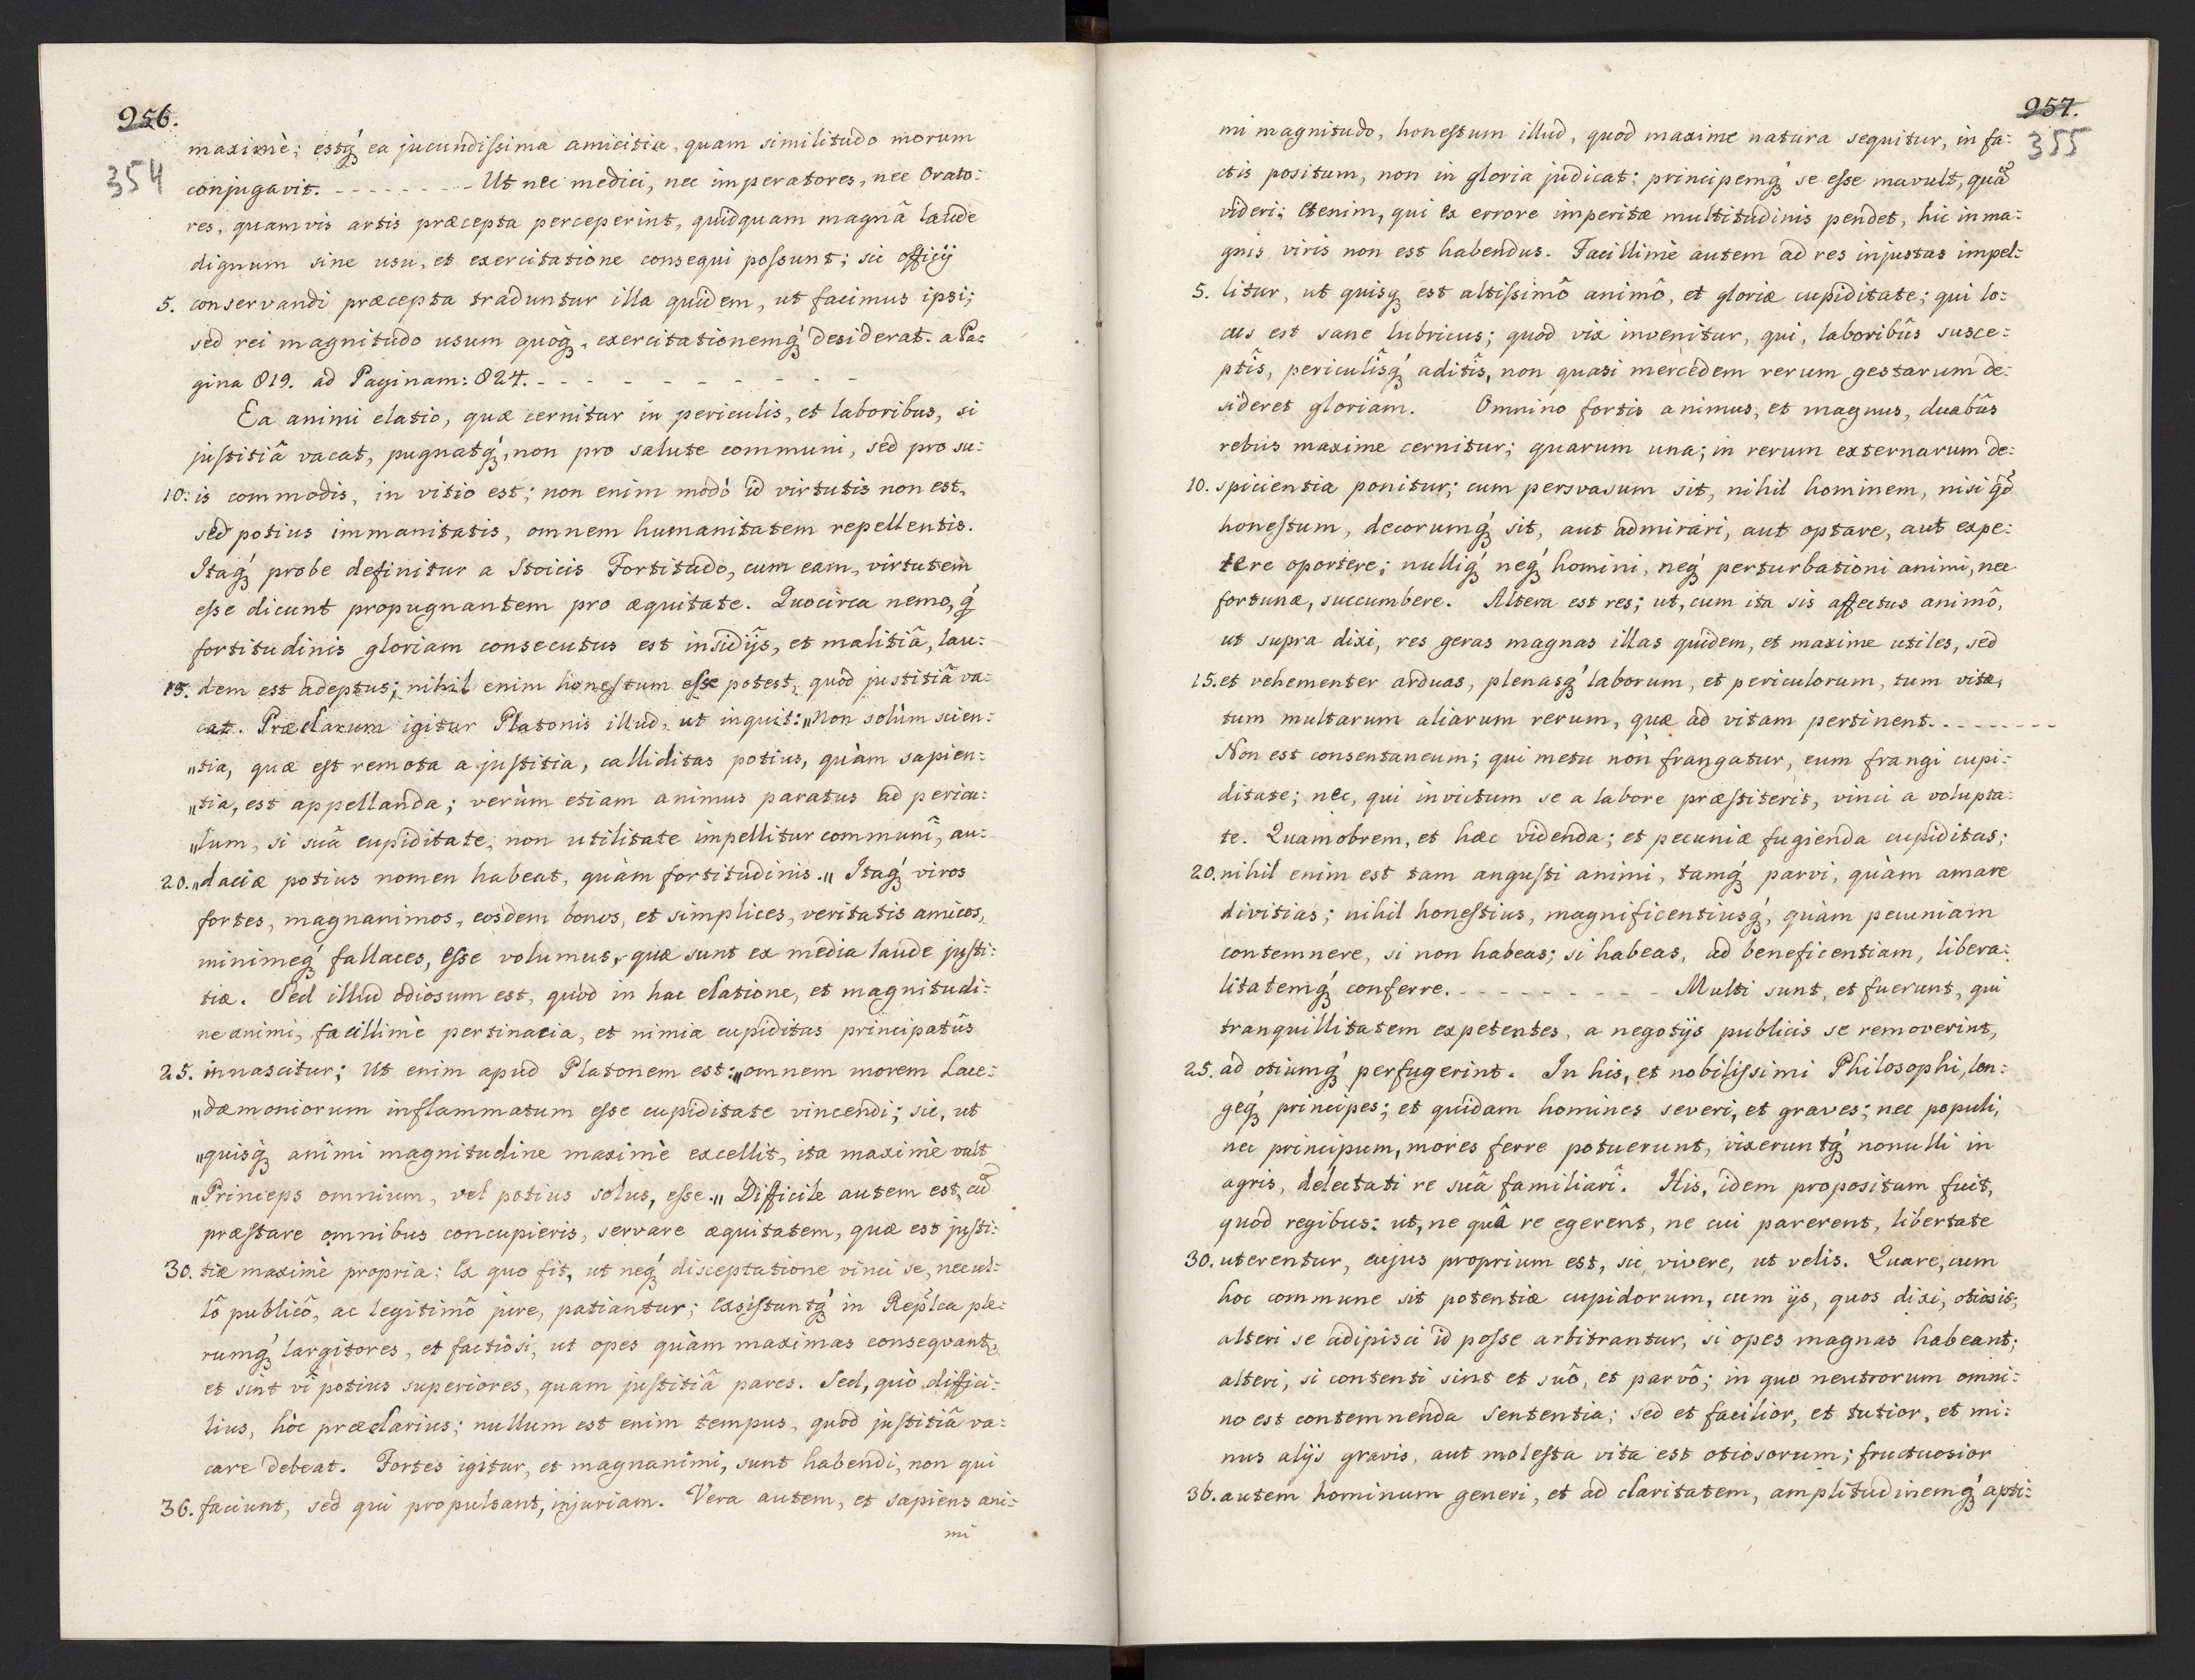 956.
354
maximè; estq́ ea jucundiſsima amicitia, quam similitudo morum
conjugavit. - - - - - - - - Ut nec medici, nec imperatores, nec Orato:
res, quamvis artis præcepta perceperint, quidquam magnâ laude
dignum sine usu, et exercitatione consequi poſsunt; sic officij
5. conservandi præcepta traduntur illa quidem, ut facimus ipsi;
sed rei magnitudo usum quoq́, exercitationemq́ desiderat. a Pa:
gina 819. ad Paginam: 824. - - - - - - - - - -
Ea animi elatio, quæ cernitur in periculis, et laboribus, si
juſtitiâ vacat, pugnatq́, non pro salute communi, sed pro su:
10. is commodis, in vitio est; non enim modò id virtutis non est,
sed potius immanitatis, omnem humanitatem repellentis.
Itaq́ probe definitur a Stoicis Fortitudo, cum eam, virtutem
eſse dicunt propugnantem pro æquitate. Quocirca nemo, q́
fortitudinis gloriam consecutus est insidijs, et malitiâ, lau:
15. dem est adeptus; nihil enim honeſtum eſse potest, quod juſtitiâ va:
cat. Præclarum igitur Platonis illud, ut inquit: „Non solùm scien:
„tia, quæ eſt remota a juſtitia, calliditas potius, quàm sapien:
„tia, est appellanda; verùm etiam animus paratus ad pericu:
„lum, si suâ cupiditate, non utilitate impellitur communî, au:
20. „daciæ potius nomen habeat, quàm fortitudinis.„ Itaq́ viros
fortes, magnanimos, eosdem bonos, et simplices, veritatis amicos,
minimeq́ fallaces, eſse volumus, quæ sunt ex media laude juſti:
tiæ. Sed illud odiosum est, quòd in hac elatione, et magnitudi:
ne animi, facillimè pertinacia, et nimia cupiditas principatûs
25. innascitur; Ut enim apud Platonem est: „omnem morem Lace:
„dæmoniorum inflammatum eſse cupiditate vincendi; sic, ut
„quisq́ animi magnitudine maximè excellit, ita maximè vult
„Princeps omnium, vel potius solus, eſse.„ Difficile autem est, cũ
præſtare omnibus concupieris, servare æquitatem, quæ est juſti:
30. tiæ maximè propria: Ex quo fit, ut neq́ disceptatione vinci se, nec ul:
lô publicô, ac legitimô jure, patiantur; exsiſtuntq́ in Repľca ple:
rumq́ largitores, et factiosi, ut opes quàm maximas conseqvantr̃,
et sint vî potius superiores, quam juſtitiâ pares. Sed, quò diffici:
lius, hòc præclarius; nullum est enim tempus, quod juſtitiâ va:
care debeat. Fortes igitur, et magnanimi, sunt habendi, non qui
36. faciunt, sed qui propulsant, injuriam. Vera autem, et sapiens ani:
mi
957.
355
mi magnitudo, honeſtum illud, quod maxime natura sequitur, in fa:
ctis positum, non in gloria judicat; principemq́ se eſse mavult, quã
videri; etenim, qui ex errore imperitæ multitudinis pendet, hic in ma:
gnis viris non est habendus. Facillimè autem ad res injustas impel:
5. litur, ut quisq́ est altiſsimô animô, et gloriæ cupiditate; qui lo:
cus est sane lubricus; quod vix invenitur, qui, laboribûs susce:
ptîs, periculîsq́ aditîs, non quasi mercedem rerum gestarum de:
sideret gloriam. Omnino fortis animus, et magnus, duabûs
rebus maxime cernitur; quarum una; in rerum externarum de:
10. spicientia ponitur; cum persvasum sit, nihil hominem, nisi qđ
honeſtum, decorumq́ sit, aut admirari, aut optare, aut expe:
tere oportere; nulliq́ neq́ homini, neq́ perturbationi animi, nec
fortunæ, succumbere. Altera est res; ut, cum ita sis affectus animô,
ut supra dixi, res geras magnas illas quidem, et maxime utiles, sed
15. et vehementer arduas, plenasq́ laborum, et periculorum, tum vitæ,
tum multarum aliarum rerum, quæ ad vitam pertinent. - - - - - - - -
Non est consentaneum; qui metu non frangatur, eum frangi cupi:
ditate; nec, qui invictum se a labore præſtiterit, vinci a volupta:
te. Quamobrem, et hæc videnda; et pecuniæ fugienda cupiditas;
20. nihil enim est tam anguſti animi, tamq́ parvi, quàm amare
divitias; nihil honeſtius, magnificentiusq́, quàm pecuniam
contemnere, si non habeas; si habeas, ad beneficentiam, libera:
litatemq́ conferre. - - - - - - - - - - Multi sunt, et fuerunt, qui
tranquillitatem expetentes, a negotijs publicis se removerint,
25. ad otiumq́ perfugerint. In his, et nobiliſsimi Philosophi, lon:
geq́ principes; et quidam homines severi, et graves; nec populi,
nec principum, mores ferre potuerunt, vixeruntq́ nonulli in
agris, delectati re suâ familiarî. His, idem propositum fuit,
quod regibus: ut, ne quâ re egerent, ne cui parerent, libertate
30. uterentur, cujus proprium est, sic, vivere, ut velis. Quare, cum
hoc commune sit potentiæ cupidorum, cum ijs, quos dixi, otiosis;
alteri se adipisci id poſse arbitrantur, si opes magnas habeant;
alteri, si contenti sint et suô, et parvô; in quo neutrorum omni:
no est contemnenda Sententia; sed et facilior, et tutior, et mi:
nus alijs gravis, aut moleſta vita est otiosorum; fructuosior
36. autem hominum generi, et ad claritatem, amplitudinemq́ apti: